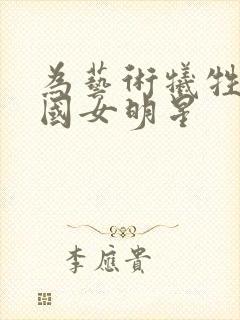 為藝術犧牲
國女明星
李應貴